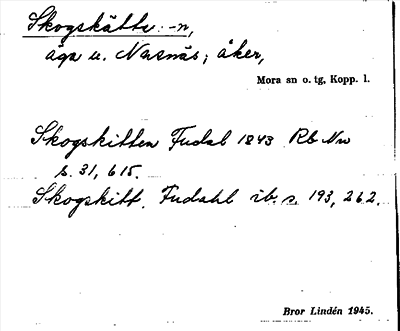 Skogskätte -n,
äga u. Nusnäs; åker,
Mora sn o. tg, Kopp. l.
Skogskitten Fudal 1843 Rb Nu
s. 31, 615.
Skogskitt. Fudahl ib. s. 193, 262.
Bror Lindén 1945.